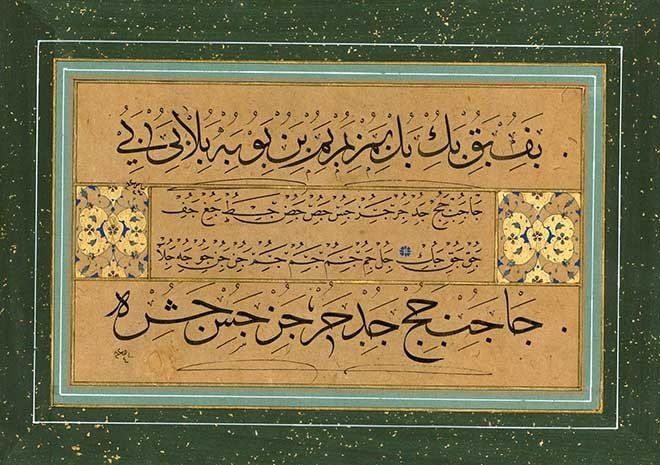 بف بق بك بل بم بم بم بن بو به بلا بى بي
جا جب جج جد جر جر جس جص جض جط جع جف
جق جق جك جل جم جم جم جم جم جن جن جو جه جلا
جا جب جج جد جر جز جس جش ره